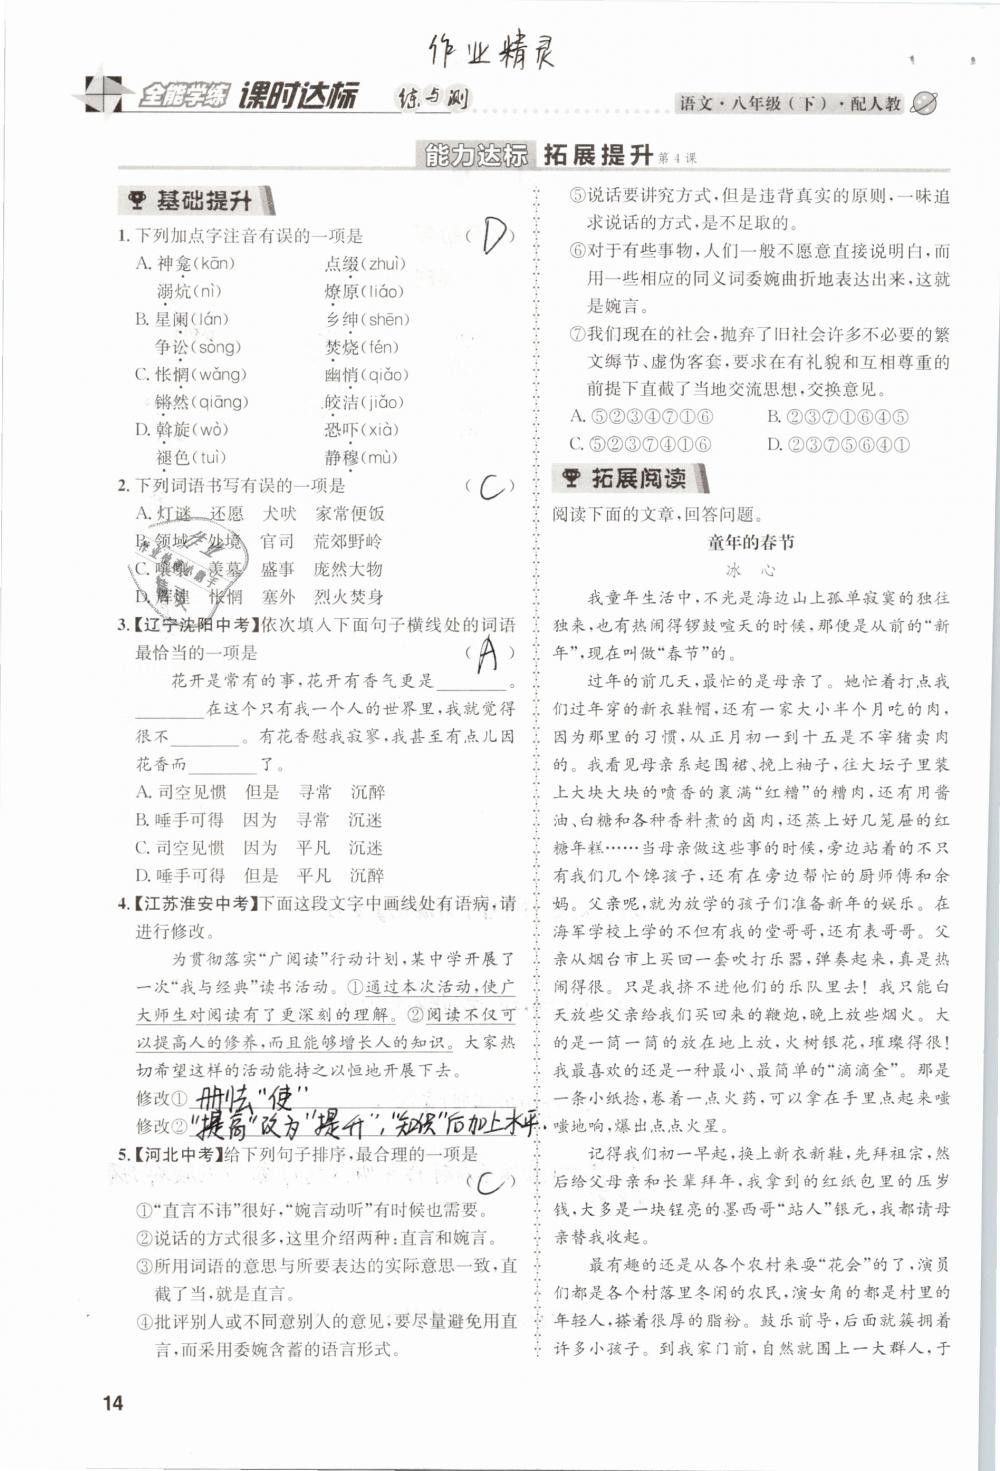 作业精灵
全能学练 课时达标 练与测
语文·八年级(下)·配人教
能力达标 拓展提升 第4课
基础提升
1. 下列加点字注音有误的一项是 ( D )
A. 神龛(kān) 点缀(zhuì)
溺炕(nì) 燎原(liáo)
B. 星阑(lán) 乡绅(shēn)
争讼(sòng) 焚烧(fén)
C. 怅惘(wǎng) 幽悄(qiǎo)
锵然(qiāng) 皎洁(jiǎo)
D. 斡旋(wò) 恐吓(xià)
褪色(tuì) 静穆(mù)
2. 下列词语书写有误的一项是 ( C )
A. 灯谜 还愿 犬吠 家常便饭
B. 领域 处境 官司 荒郊野岭
C. 嚷嚷 羡墓 盛事 庞然大物
D. 辉煌 怅惘 塞外 烈火焚身
3.【辽宁沈阳中考】依次填入下面句子横线处的词语
最恰当的一项是 ( A )
花开是常有的事,花开有香气更是________。
________在这个只有我一个人的世界里,我就觉得
很不________。有花香慰我寂寥,我甚至有点儿因
花香而________了。
A. 司空见惯 但是 寻常 沉醉
B. 唾手可得 因为 寻常 沉迷
C. 司空见惯 因为 平凡 沉迷
D. 唾手可得 但是 平凡 沉醉
4.【江苏淮安中考】下面这段文字中画线处有语病,请
进行修改。
为贯彻落实“广阅读”行动计划,某中学开展了
一次“我与经典”读书活动。①通过本次活动,使广
大师生对阅读有了更深刻的理解。②阅读不仅可
以提高人的修养,而且能够增长人的知识。大家热
切希望这样的活动能持之以恒地开展下去。
修改① 删去“使”
修改② “提高”改为“提升”,“知识”后加上水平.
5.【河北中考】给下列句子排序,最合理的一项是
( C )
①“直言不讳”很好,“婉言动听”有时候也需要。
②说话的方式很多,这里介绍两种:直言和婉言。
③所用词语的意思与所要表达的实际意思一致,直
截了当,就是直言。
④批评别人或不同意别人的意见,要尽量避免用直
言,而采用委婉含蓄的语言形式。
14
⑤说话要讲究方式,但是违背真实的原则,一味追
求说话的方式,是不足取的。
⑥对于有些事物,人们一般不愿意直接说明白,而
用一些相应的同义词委婉曲折地表达出来,这就
是婉言。
⑦我们现在的社会,抛弃了旧社会许多不必要的繁
文缛节、虚伪客套,要求在有礼貌和互相尊重的
前提下直截了当地交流思想,交换意见。
A. ⑤②③④⑦①⑥ B. ②③⑦①⑥④⑤
C. ⑤②③⑦④①⑥ D. ②③⑦⑤⑥④①
拓展阅读
阅读下面的文章,回答问题。
童年的春节
冰 心
我童年生活中,不光是海边山上孤单寂寞的独往
独来,也有热闹得锣鼓喧天的时候,那便是从前的“新
年”,现在叫做“春节”的。
过年的前几天,最忙的是母亲了。她忙着打点我
们过年穿的新衣鞋帽,还有一家大小半个月吃的肉,
因为那里的习惯,从正月初一到十五是不宰猪卖肉
的。我看见母亲系起围裙、挽上袖子,往大坛子里装
上大块大块的喷香的裹满“红糟”的糟肉,还有用酱
油、白糖和各种香料煮的卤肉,还蒸上好几笼屉的红
糖年糕……当母亲做这些事的时候,旁边站着的不只
有我们几个馋孩子,还有在旁边帮忙的厨师傅和余
妈。父亲呢,就为放学的孩子们准备新年的娱乐。在
海军学校上学的不但有我的堂哥哥,还有表哥哥。父
亲从烟台市上买回一套吹打乐器,弹奏起来,真是热
闹得很。只是我挤不进他们的乐队里去!我只能白
天放些父亲给我们买回来的鞭炮,晚上放些烟火。大
的是一筒一筒的放在地上放,火树银花,璀璨得很!
我最喜欢的还是一种最小、最简单的“滴滴金”。那是
一条小纸捻,卷着一点火药,可以拿在手里点起来嗤
嗤地响,爆出点点火星。
记得我们初一早起,换上新衣新鞋,先拜祖宗,然
后给父母亲和长辈拜年,我拿到的红纸包里的压岁
钱,大多是一块锃亮的墨西哥“站人”银元,我都请母
亲替我收起。
最有趣的还是从各个农村来耍“花会”的了,演员
们都是各个村落里冬闲的农民,演女角的都是村里的
年轻人,搽着很厚的脂粉。鼓乐前导,后面就簇拥着
许多小孩子。到我家门前,自然就围上一大群人,于